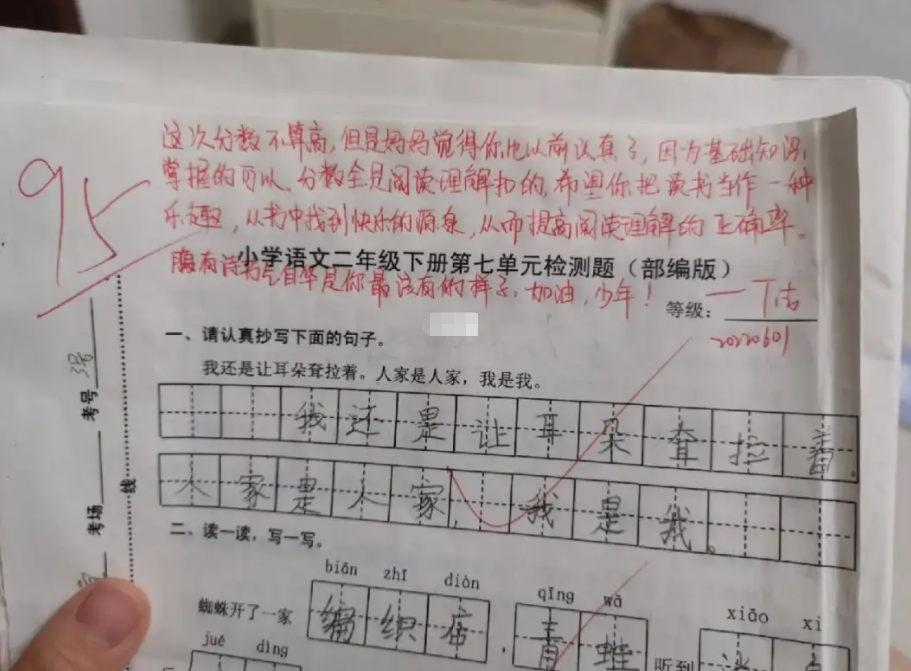 95
这次分数不算高,但是妈妈觉得你比以前认真了,因为基础知识
掌握的可以、分数全是阅读理解扣的,希望你把读书当作一种
乐趣,从书中找到快乐的源泉,从而提高阅读理解的正确率。
小学语文二年级下册第七单元检测题(部编版)
腹有诗书气自华是你最该有的样子,加油,少年!
等级:
20220601
一、请认真抄写下面的句子。
我还是让耳朵耷拉着。人家是人家,我是我。
我还是让耳朵耷拉着。
人家是人家,我是我。
二、读一读,写一写。
biān zhī diàn
qīng wā
xiāo xi
蜘蛛开了一家 编织店,青蛙 听到消息
jué dìng
考号
考场
线